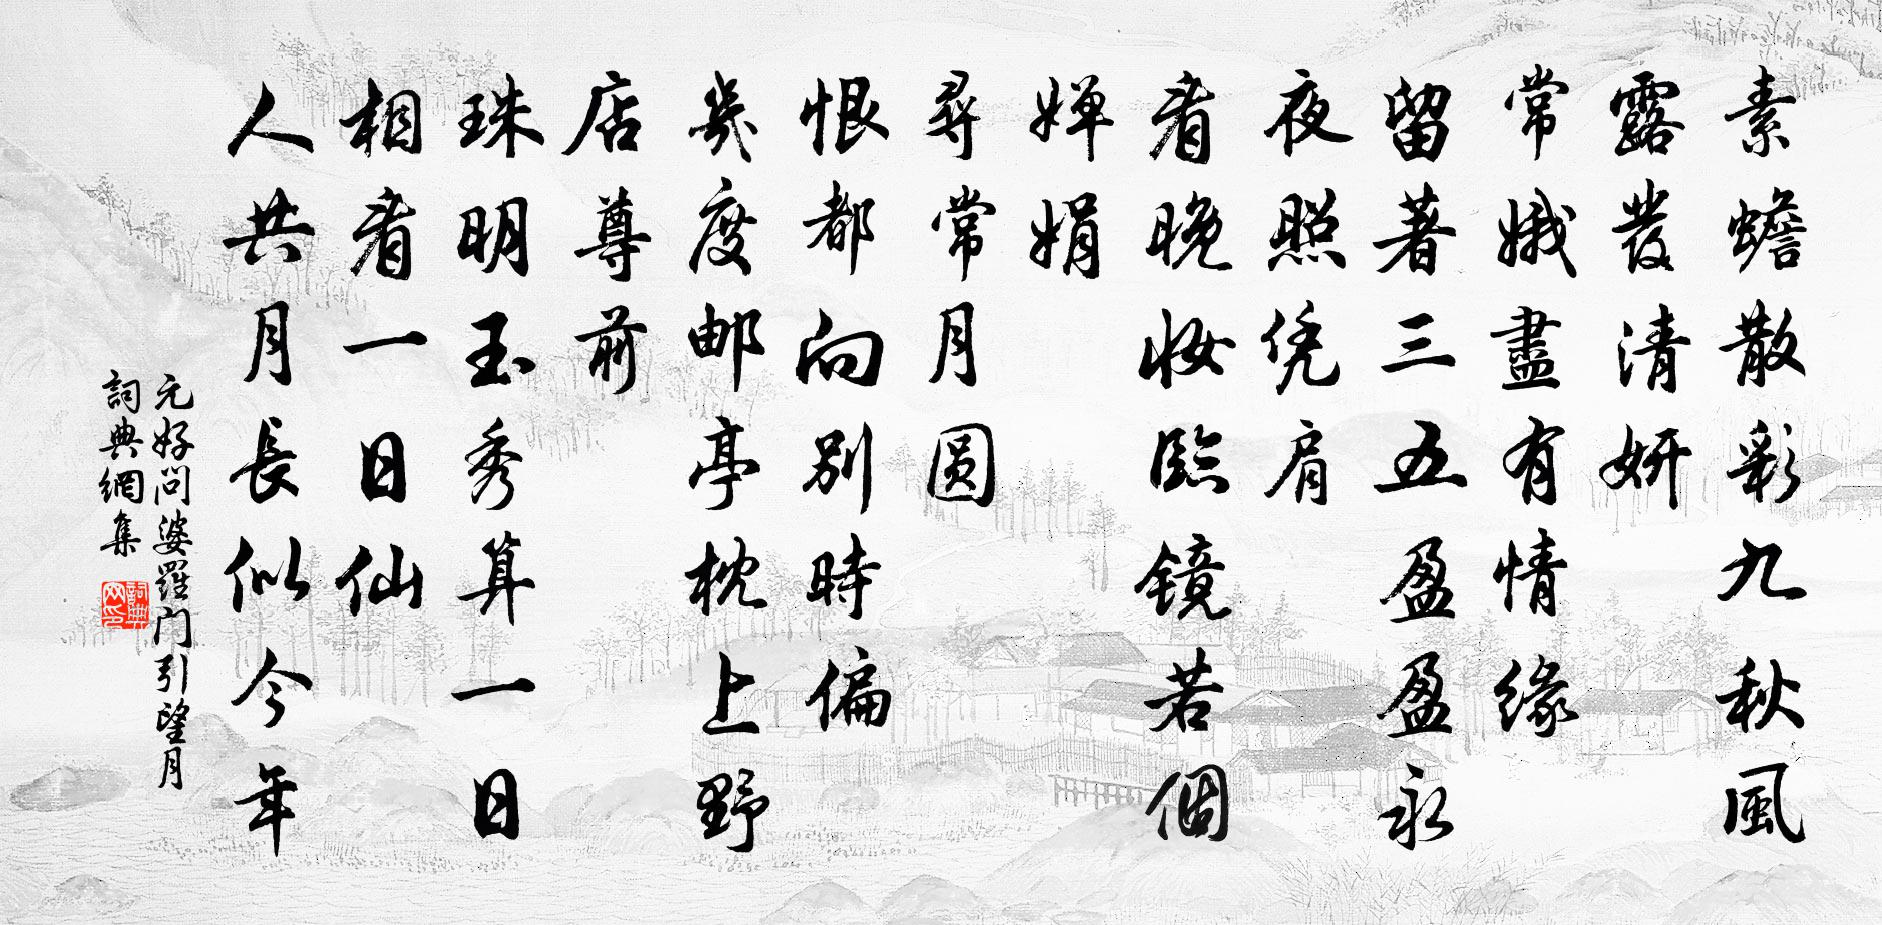 素蟾散彩九秋風
露發清妍
常娥盡有情緣
留著三五盈盈永
夜照凭肩
看晚妆臨镜若個
婵娟
尋常月圆
恨都向別時偏
幾度邮亭枕上野
店尊前
珠明玉秀算一日
相看一日仙
人共月長似今年
元好問婆羅门引望月
詞典網集